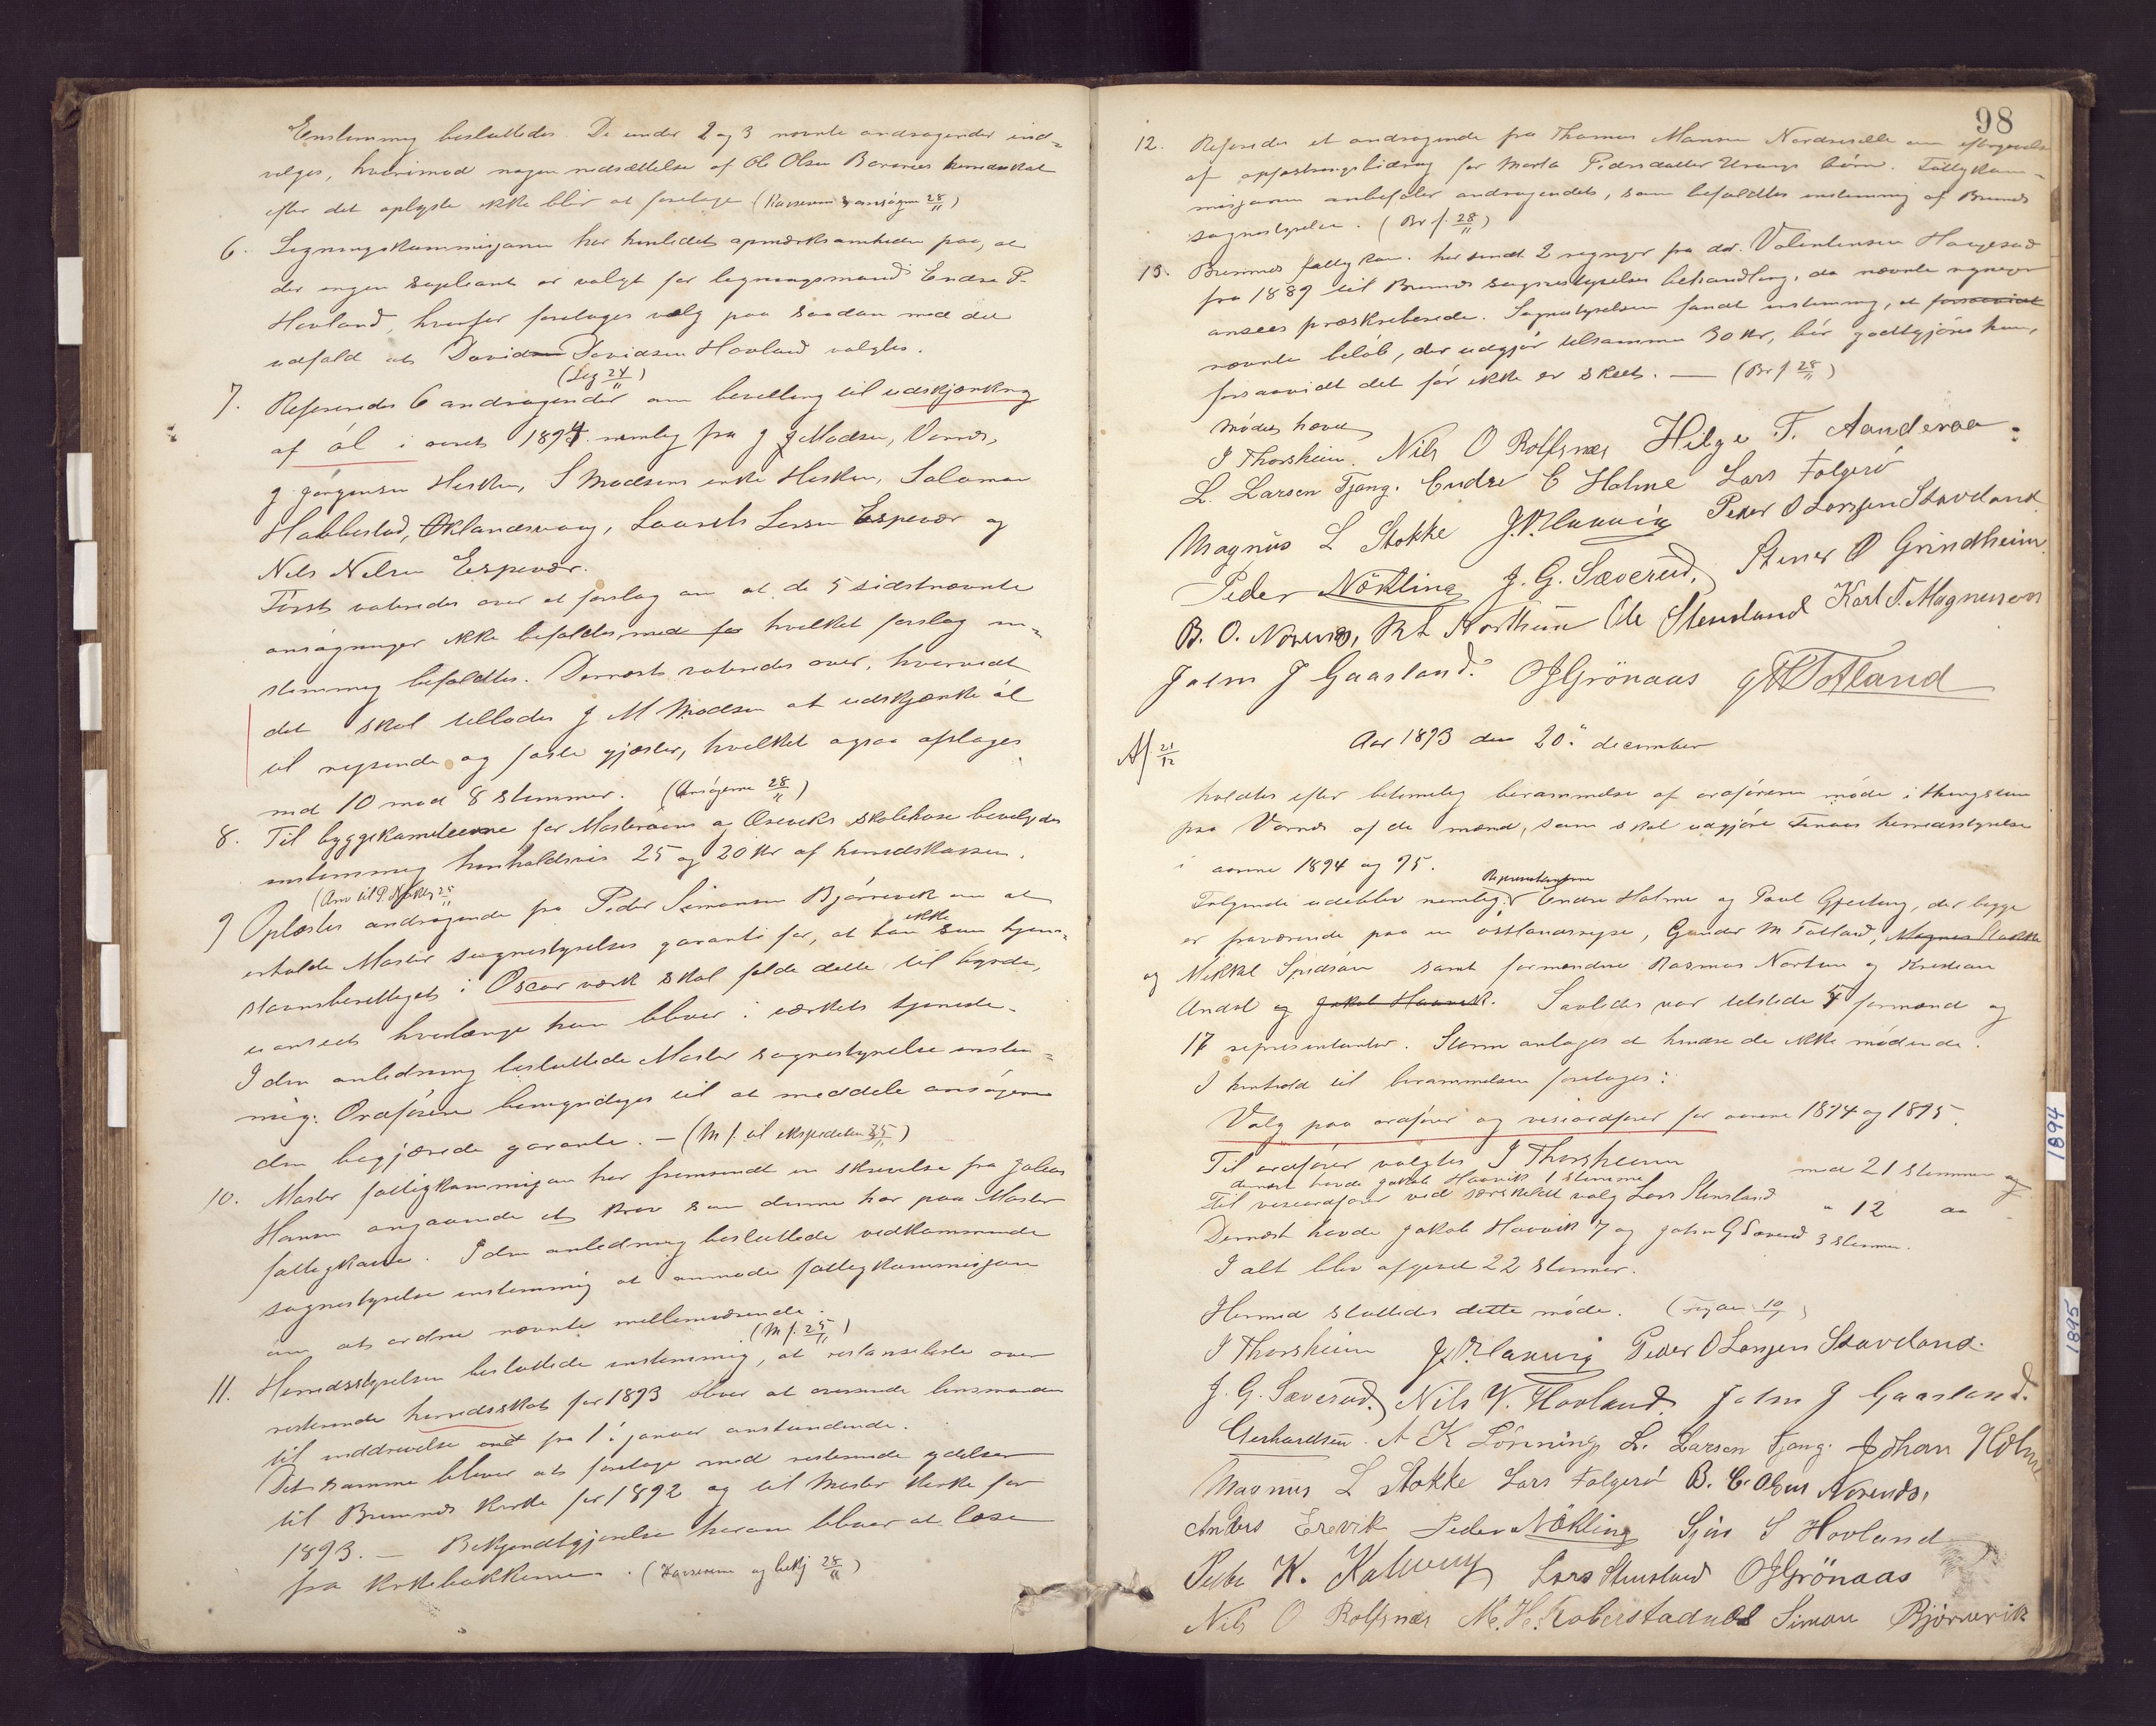 Enstemmig besluttedes. De under 2 og 3 nævnte andragender ind=
vilges, hvorimod nogen nedsættelse af Ole Olsen Børøens herredsskat
efter det oplyste ikke blir at foretage (Kassereren & ansøgerne 28/11)
6. Ligningskommissjonen har henledet opmærksomheden paa, at
der ingen suppleant er valgt for ligningsmand Endre P.
Hovland, hvorfor foretages valg paa saadan med det
udfald at David Davidsen Hovland valgtes.
(Lig 24/11)
7. Refereredes 6 andragender om bevilling til udskjænkning
af øl i aaret 1894 nemlig fra J J Madsen, Vornes,
J Jørgensen Hisken, S Madsens enke Hisken, Salamon
Habbestad, Øklandsvaag, Laurits Larsen Espevær og
Nils Nilsen Espevær.
Først voteredes over et forslag om at de 5 sidstnævnte
ansøgninger ikke befaldes hvilket forslag en=
stemmig befaldtes. Dernæst voteredes over, hvorvidt
det skal tillades J M Madsen at udskjænke øl
til reisende og faste gjæster, hvilket ogsaa afslages
med 10 mod 8 stemmer. (Ansøgerne 28/11)
8. Til byggekomiteerne for Mosterøens og Eseviks skolehuse bevilgedes
enstemmig henholdsvis 25 og 20 Kr af herredskassen.
(Anv til P. Nøkling 25/11)
9 Oplæstes andragende fra Peder Simonsen Bjørnevik om at
erholde Moster sognestyrelses garanti for, at han ikke som hjem=
stavnsberettiget i Oscar værk skal falde dette til byrde,
uanseet hvorlænge han bliver i værkets tjeneste.
I den anledning besluttede Moster sognestyrelse enstem=
mig: Ordføreren bemyndiges til at meddele ansøgeren
den begjærede garanti. — (M f. til ekspedition 25/11)
10. Moster fattigkommisjon har fremsendt en skrivelse fra Johan
Hansen angaaende et krav som denne har paa Moster
fattigkasse. I den anledning besluttede vedkommende
sognestyrelse enstemmig at anmode fattigkommisjonen
om at ordne nævnte mellemværende.
(M f. 25/11)
11. Herredsstyrelsen besluttede enstemmig, at restanseliste over
resterende herredsskat for 1893 bliver at oversende lensmanden
til inddrivelse fra 1. januar anstundende.
Det samme bliver at foretage med resterende ydelser
til Bremnes kirke for 1892 og til Moster kirke for
1893. — Bekjendtgjørelse herom bliver at læse
fra kirkebakkerne. (Kassereren og bekj 28/11)
98
12. Refereredes et andragende fra Thomas Mansen Nordreselle om eftergivelse
af opfostringsbidrag for Marta Pedersdatter Urangs børn. Fattigkom=
misjonen anbefaler andragendet, som befaldtes enstemmig af Bremnes
sognestyrelse. (Br f. 28/11)
13. Bremnes fattigkom. har sendt 2 regninger fra dr. Valentinsen Haugesund
fra 1889 til Bremnes sognestyrelses behandling, da nævnte regninger
ansees præskriberede. Sognestyrelsen fandt enstemmig, at forsaavidt
nævnte beløb, der udgjør tilsammen 30 Kr, bør godtgjøres ham,
forsaavidt det før ikke er skeet. — (Br f 28/11)
Mødet hævet
I Thorsheim. Nils O Rolfsnes Hilge T. Aanderaa.
L. Larsen Tjong. Endre E Holme Lars Folgerø
Magnus L Stokke J. P. Haavig Peder O Larssen Stavland
Peder Nökling J. G. Sæverud, Stener O Grindheim
B. O. Norends, R L Northun Ole Stensland Karl S. Magnusen
John J Gaasland. O J Grönaas G M Totland
Af 21/12
Aar 1893 den 20. december
holdtes efter betimelig berammelse af ordføreren møde i thingstuen
paa Vornes af de mænd, som skal udgjøre Finaas herredsstyrelse
i aarene 1894 og 95.
Repræsentanterne
Følgende udeblev nemlig Endre Holme og Paul Gjerting, der begge
er fraværende paa en østlandsreise, Gunder M Totland, Magnus Stokke
og Mikkel Spidsøen samt formændene Rasmus Nortun og Kristian
Andal og Jakob Haavik. Saaledes var tilstede 5 formænd og
17 repræsentanter. Storm antages at hindre de ikke mødende.
I henhold til berammelsen foretages:
Valg paa ordfører og viseordfører for aarene 1894 og 1895.
Til ordfører valgtes I Thorsheim med 21 stemmer og
dernæst havde Jakob Haavik 1 stemme
Til viseordfører ved særskildt valg Lars Stensland " 12 aa
Dernæst havde Jakob Haavik 7 og John G Sæverud 3 stemmer.
I alt blev afgivet 22 stemmer.
Hermed sluttedes dette møde.
I Thorsheim J. P. Haavig Peder O Larssen Stavland.
J. G. Sæverud. Nils V. Hovland John J Gaasland.
Gerhardsen. A K Lönning L. Larsen Tjong. Johan Holme
Magnus L Stokke Lars Folgerö B. C. Olsen Norends,
Anders Erevik Peder Nökling Sjur S Hovland
Peder K. Lars Stensland O J Grönaas
Nils O Rolfsnes M. H. Simon Bjørnevik
1894
1895